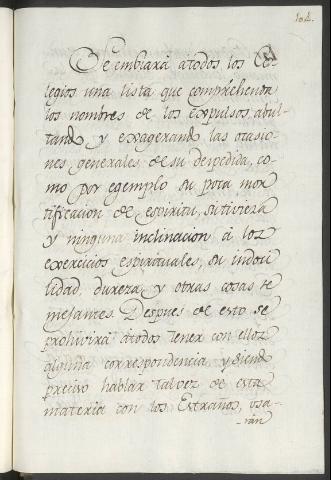 104.
Se embiará atodos los Co-
legios una lista que comprehenda
los nombres de los expulsos, abul-
tando y exagerando las ocasio-
nes generales de su despedida, co-
mo por egemplo su poca mor
tificacion de espiritu, su tivieza
y ninguna inclinacion á los
exercicios espirituales, su indoci
lidad, dureza, y otras cosas se
mejantes. Despues de esto se
prohivirá atodos tener con ellos
alguna correspondencia, y siendo
preciso hablar talvez de esta
materia con los Extraños, usa-
-rán